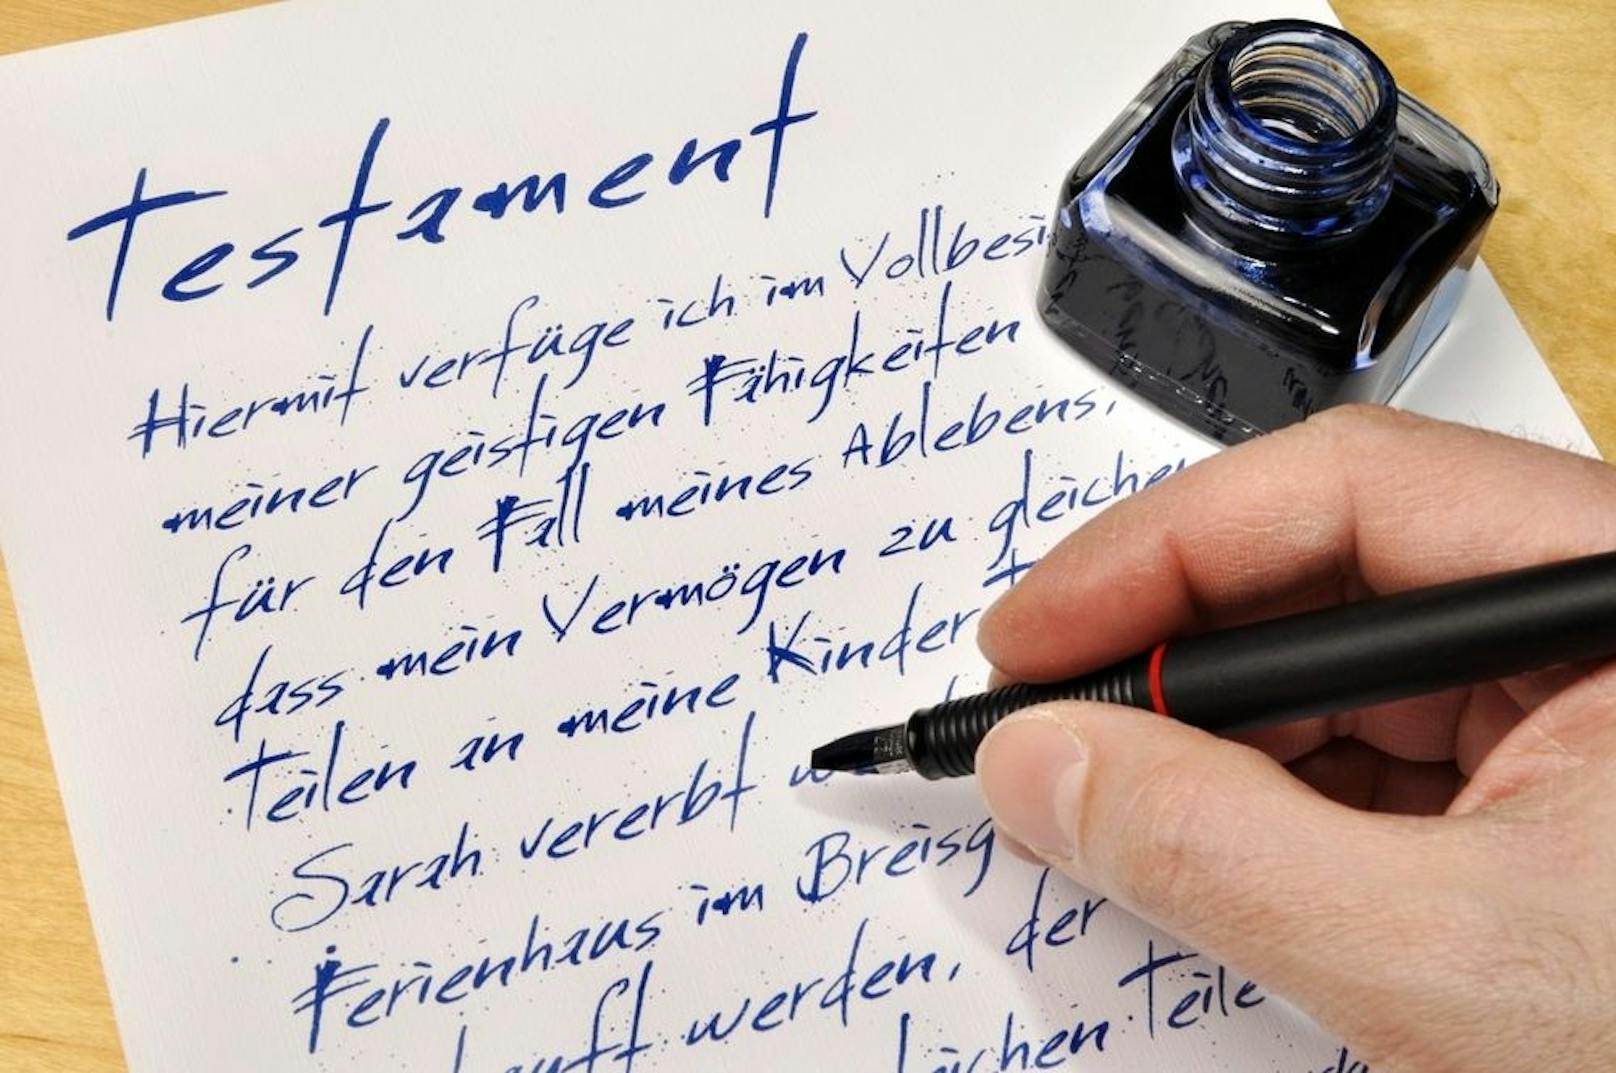 Testament
Hiermit verfüge ich im Vollbesi
meiner geistigen Fähigkeiten
für den Fall meines Ablebens,
dass mein Vermögen zu gleichen
Teilen an meine Kinder
Sarah vererbt
Ferienhaus im Breisg
werden, der
Teile